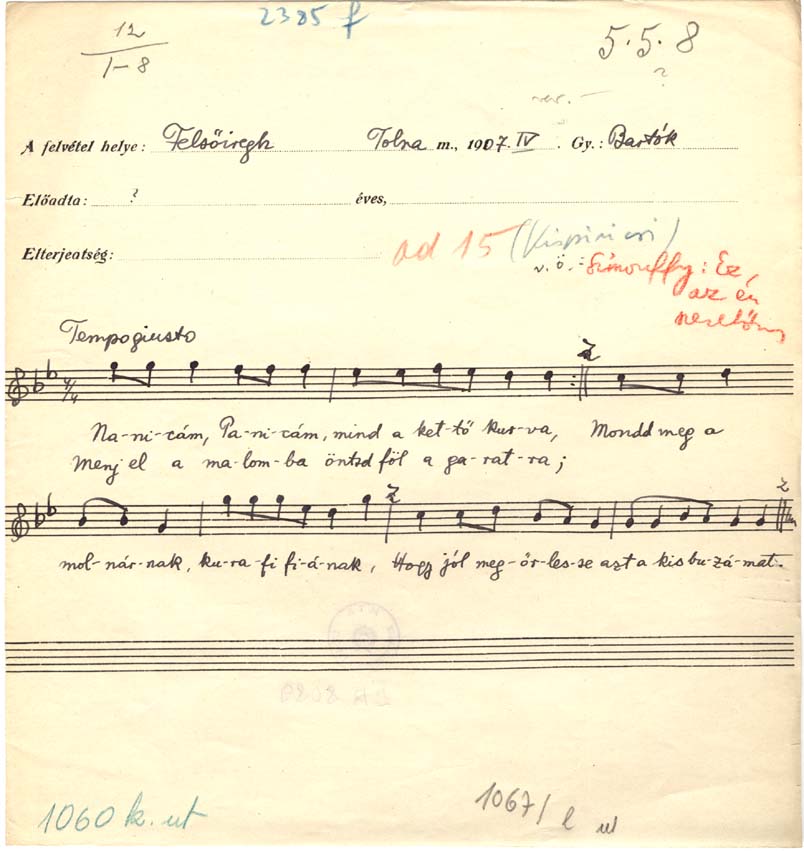 12
1-8
2385 f
5.5.8
?
rev. –
A felvétel helye: Felsőiregh Tolna m., 1907. IV. Gy.: Bartók
Előadta: ? éves,
Elterjeatség: ad 15 (Kispiricsi)
v. ö.: Simonffy: Ez,
az én
szeretőm,
Tempo giusto
Na-ni-cám, Pa-ni-cám, mind a ket-tő kur-va, Mondd meg a
Menj el a ma-lom-ba öntsd föl a ga-rat-ra;
mol-nár-nak, ku-ra-fi fi-á-nak, Hogy jól meg-őr-les-se azt a kis bu-zá-mat.
1060 k. ut
1067/